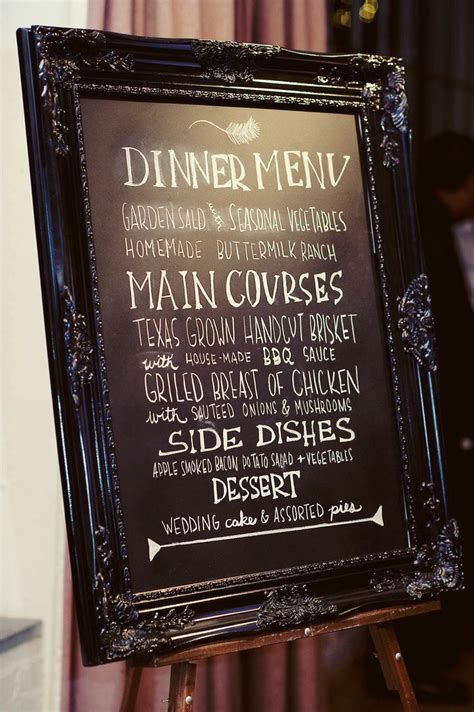 DINNER MENU
GARDEN SALD with SEASONAL VEGETABLES
HOMEMADE BUTTERMILK RANCH
MAIN COURSES
TEXAS GROWN HANDCUT BRISKET
with HOUSE-MADE BBQ SAUCE
GRILED BREAST OF CHICKEN
with SAUTEED ONIONS & MUSHROOMS
SIDE DISHES
APPLE SMOKED BACON POTATO SALAD + VEGETABLES
DESSERT
WEDDING cake & ASSORTED pies